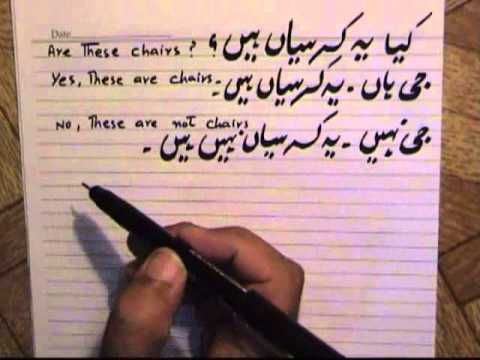 Date
Are These chairs ? کیا یہ کرسیاں ہیں ؟
Yes, These are chairs. جی ہاں ۔ یہ کرسیاں ہیں ۔
No, These are not chairs جی نہیں ۔ یہ کرسیاں نہیں ہیں ۔